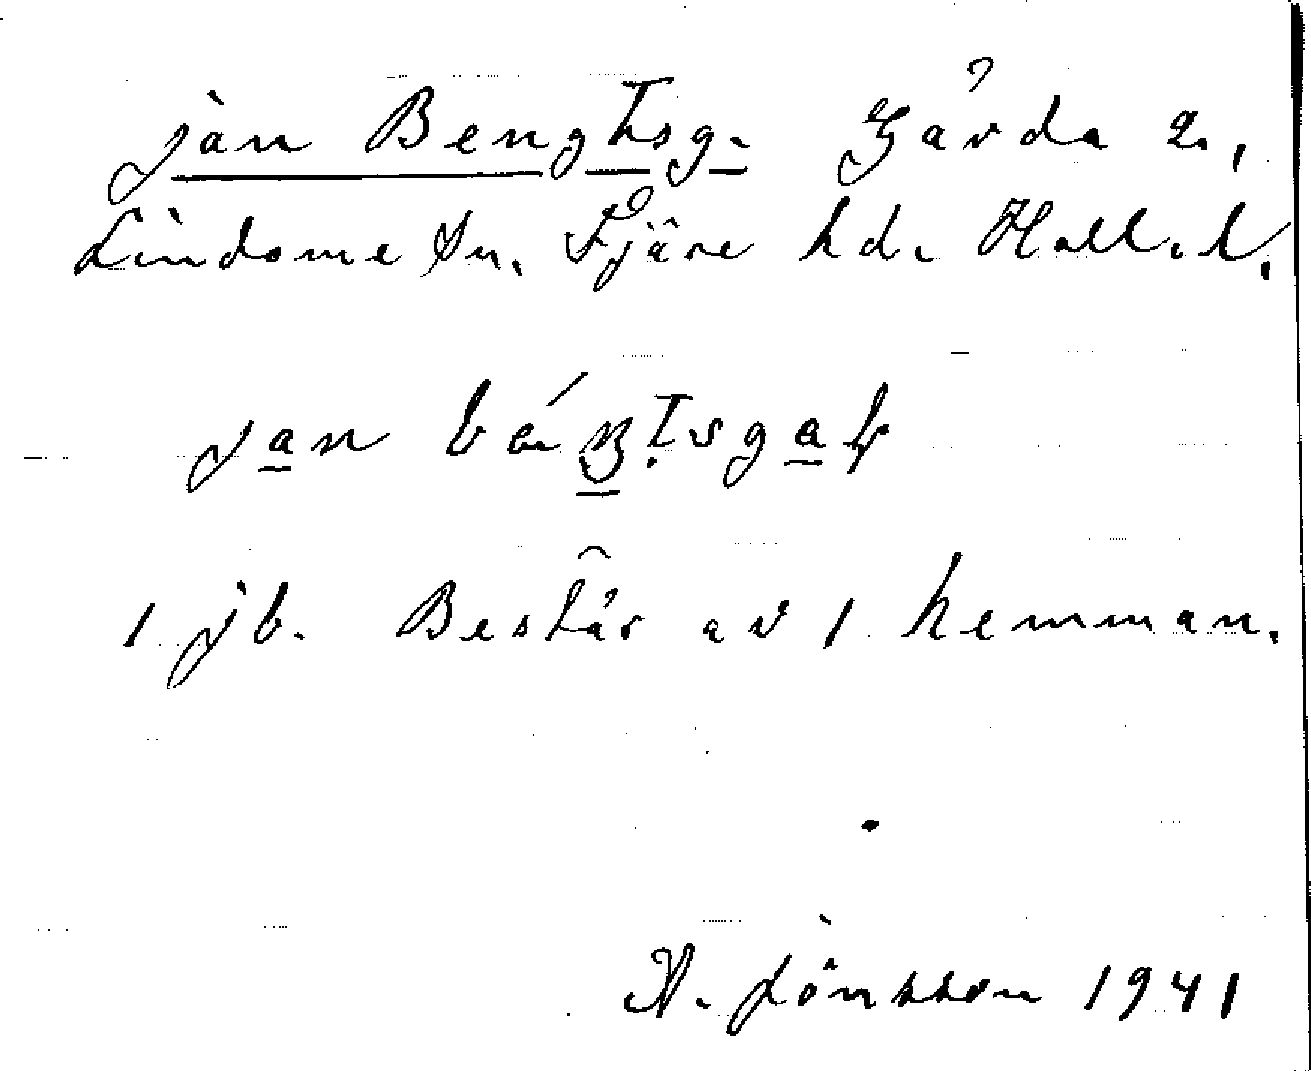 Jan Bengtsg. Gårda 2.,
Lindome sn. Fjäre hd. Hall. l.
1 jb. Består av 1 hemman.
N. Jönsson 1941